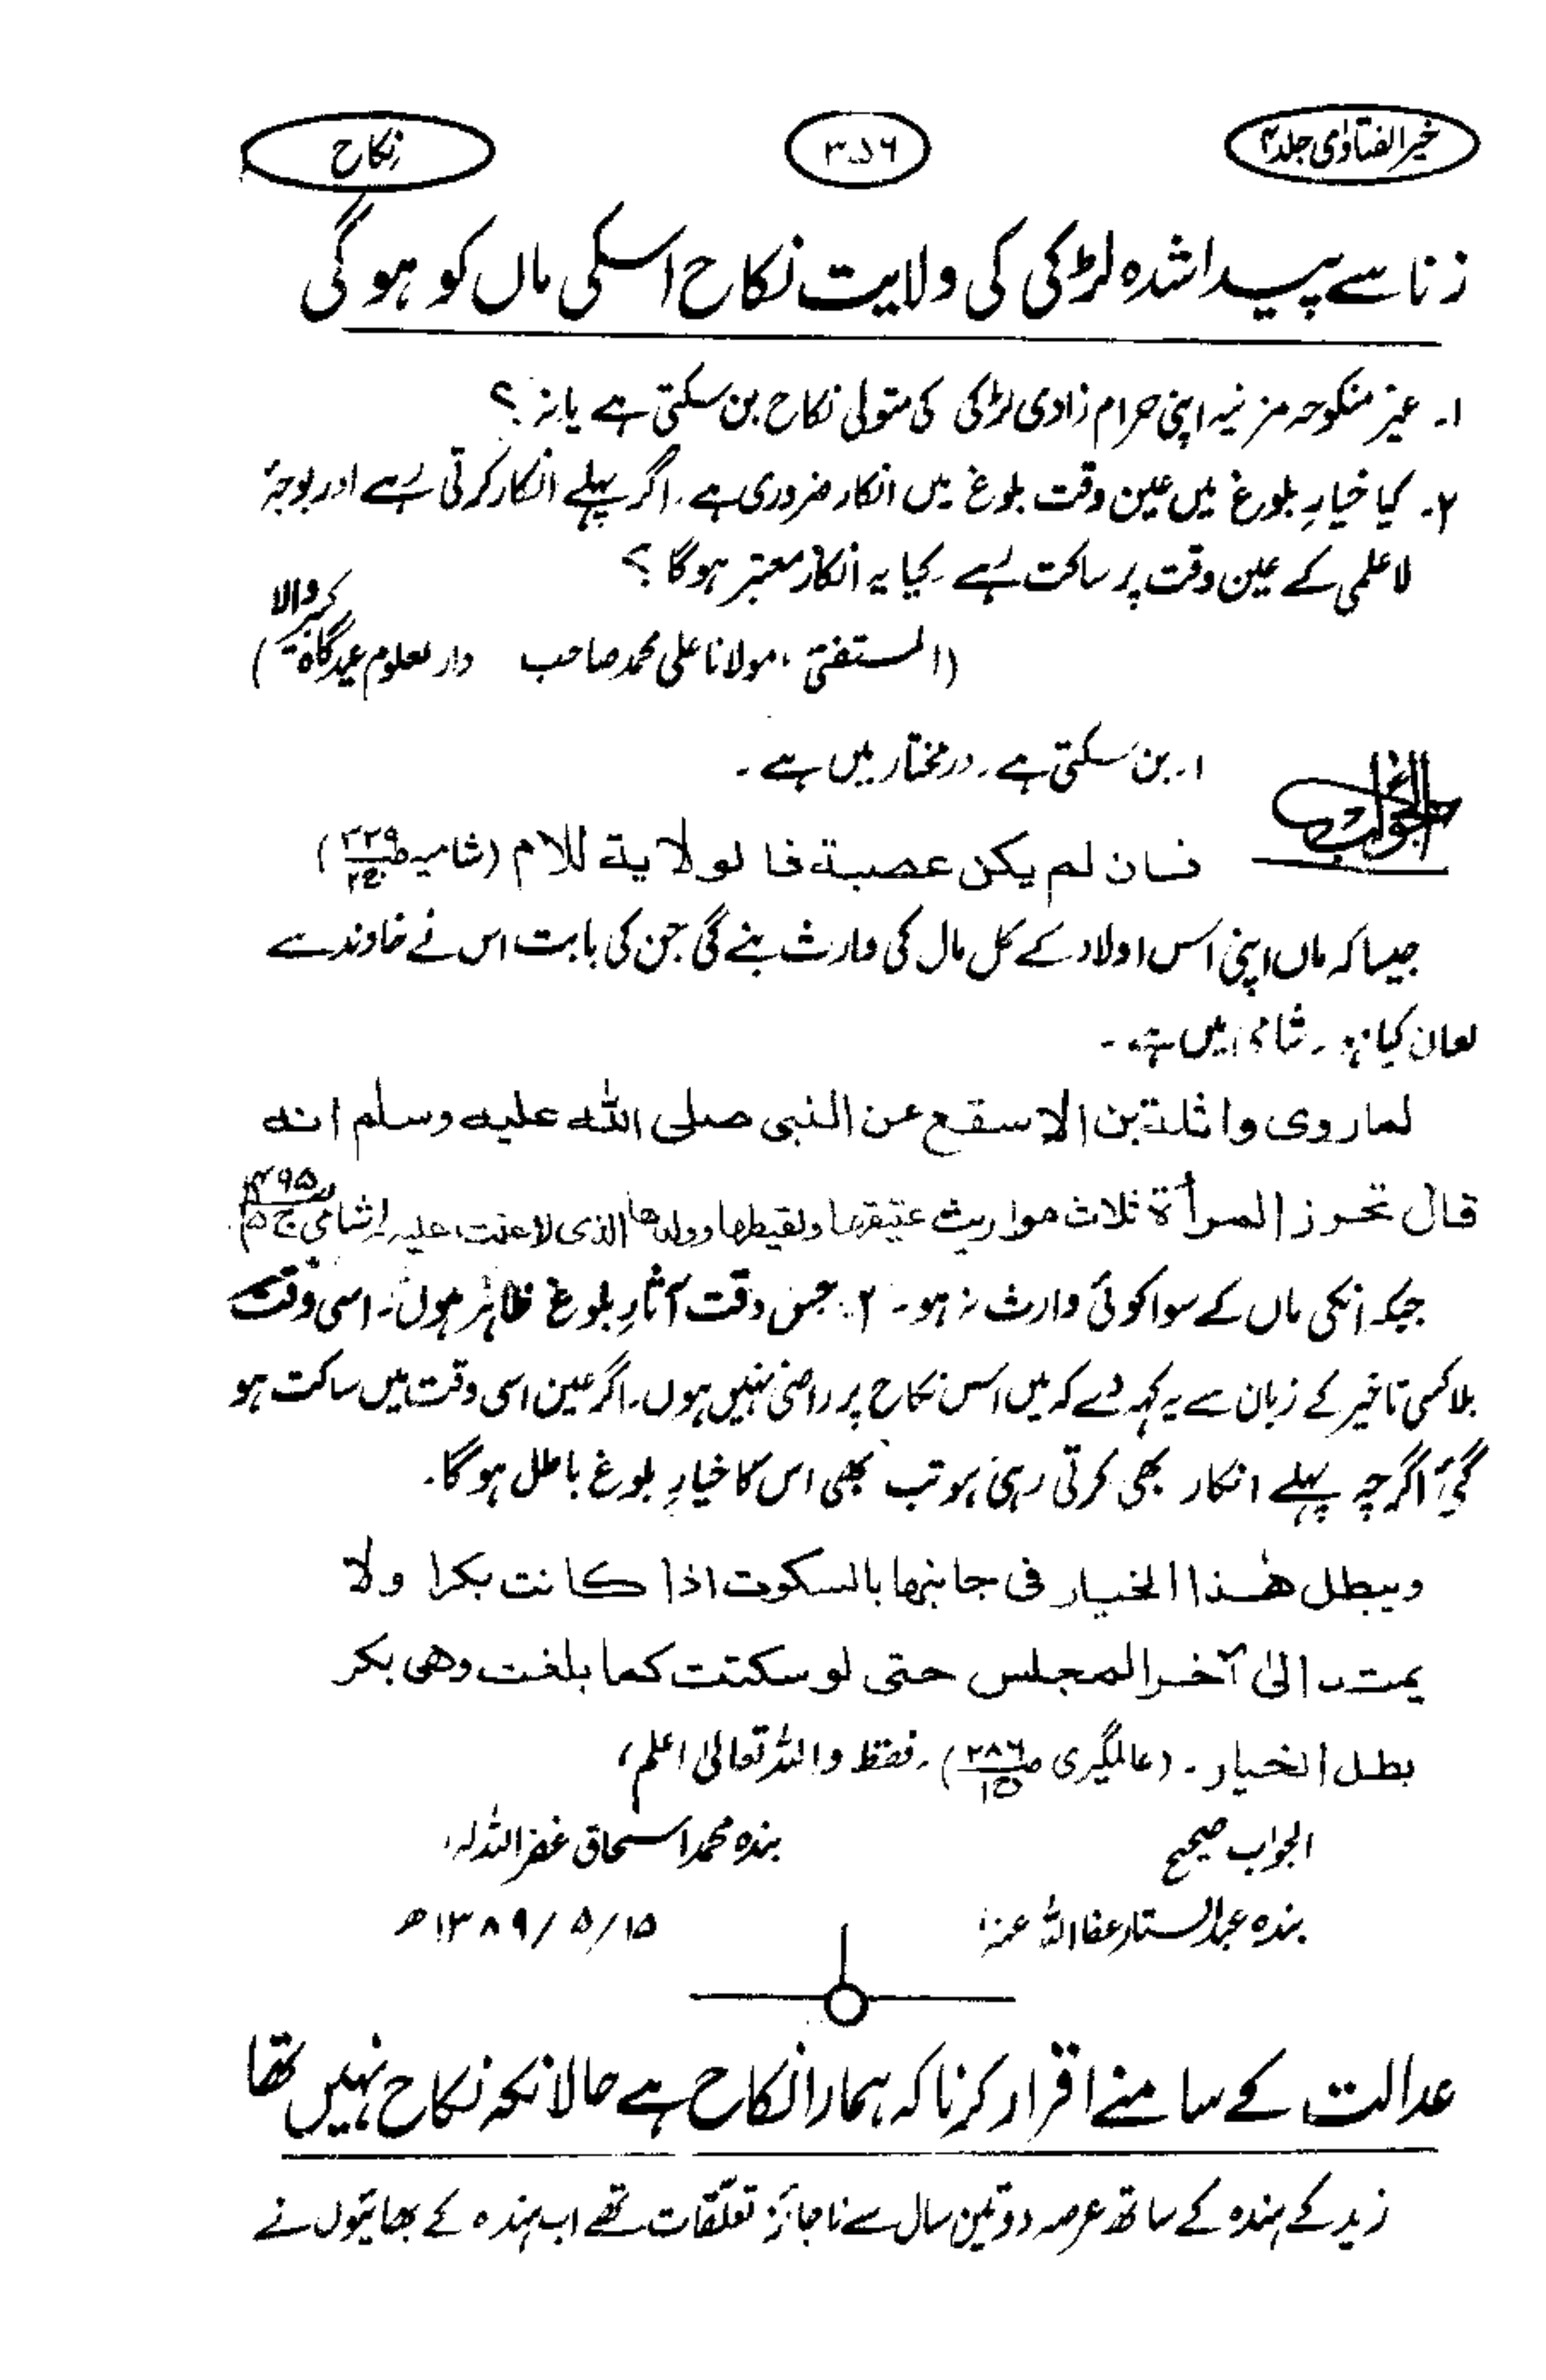 خیر الفتاوٰی جلد ۴
۳۵۶
نکاح
زنا سے پیدا شدہ لڑکی کی ولایت نکاح اسکی ماں کو ہوگی
۱۔ غیر منکوحہ مزنیہ اپنی حرام زادی لڑکی کی متولی نکاح بن سکتی ہے یا نہ ؟
۲۔ کیا خیارِ بلوغ میں عین وقت بلوغ میں انکار ضروری ہے۔ اگر پہلے انکار کرتی رہے اور بوجہ
لاعلمی کے عین وقت پر ساکت رہے۔ کیا یہ انکار معتبر ہوگا ؟
(المستفتی، مولانا علی محمد صاحب دارلعلوم عیدگاہ کبیر والا)
الجواب
۱۔ بن سکتی ہے۔ درمختار میں ہے۔
فان لم یکن عصبة فالولایة للام (شامیہ ص۳۲۹ ج۲)
جیسا کہ ماں اپنی اس اولاد کے کل مال کی وارث بنے گی جن کی بابت اس نے خاوند سے
لعان کیا ہو۔ شامی میں ہے۔
لما روی واثلة بن الاسقع عن النبی صلی اللہ علیہ وسلم انه
قال تحرز المرأة ثلاث مواریث عتیقھا ولقیطھا وولدھا الذی لاعنت علیہ (شامی ص۴۹۵ ج۵)
جبکہ انکی ماں کے سوا کوئی وارث نہ ہو۔ ۲۔ جس وقت آثارِ بلوغ ظاہر ہوں۔ اسی وقت
بلا کسی تاخیر کے زبان سے یہ کہہ دے کہ میں اس نکاح پر راضی نہیں ہوں۔ اگر عین اسی وقت میں ساکت ہو
گئی اگرچہ پہلے انکار بھی کرتی رہی ہو تب بھی اس کا خیارِ بلوغ باطل ہوگا۔
ویبطل ھٰذا الخیار فی جانبھا بالسکوت اذا کانت بکرا ولا
یمتد الیٰ آخر المجلس حتی لو سکتت کما بلغت وھی بکر
بطل الخیار۔ (عالمگیری ص۲۸۶ ج۱)۔ فقط واللہ تعالیٰ اعلم،
الجواب صحیح
بندہ محمد اسحاق غفر اللہ لہ،
بندہ عبدالستار عفا اللہ عنہ
۱۵/۵/۱۳۸۹ھ
عدالت کے سامنے اقرار کرنا کہ ہمارا نکاح ہے حالانکہ نکاح نہیں تھا
زید کے ہندہ کے ساتھ عرصہ دو تین سال سے ناجائز تعلقات تھے اب ہندہ کے بھائیوں نے